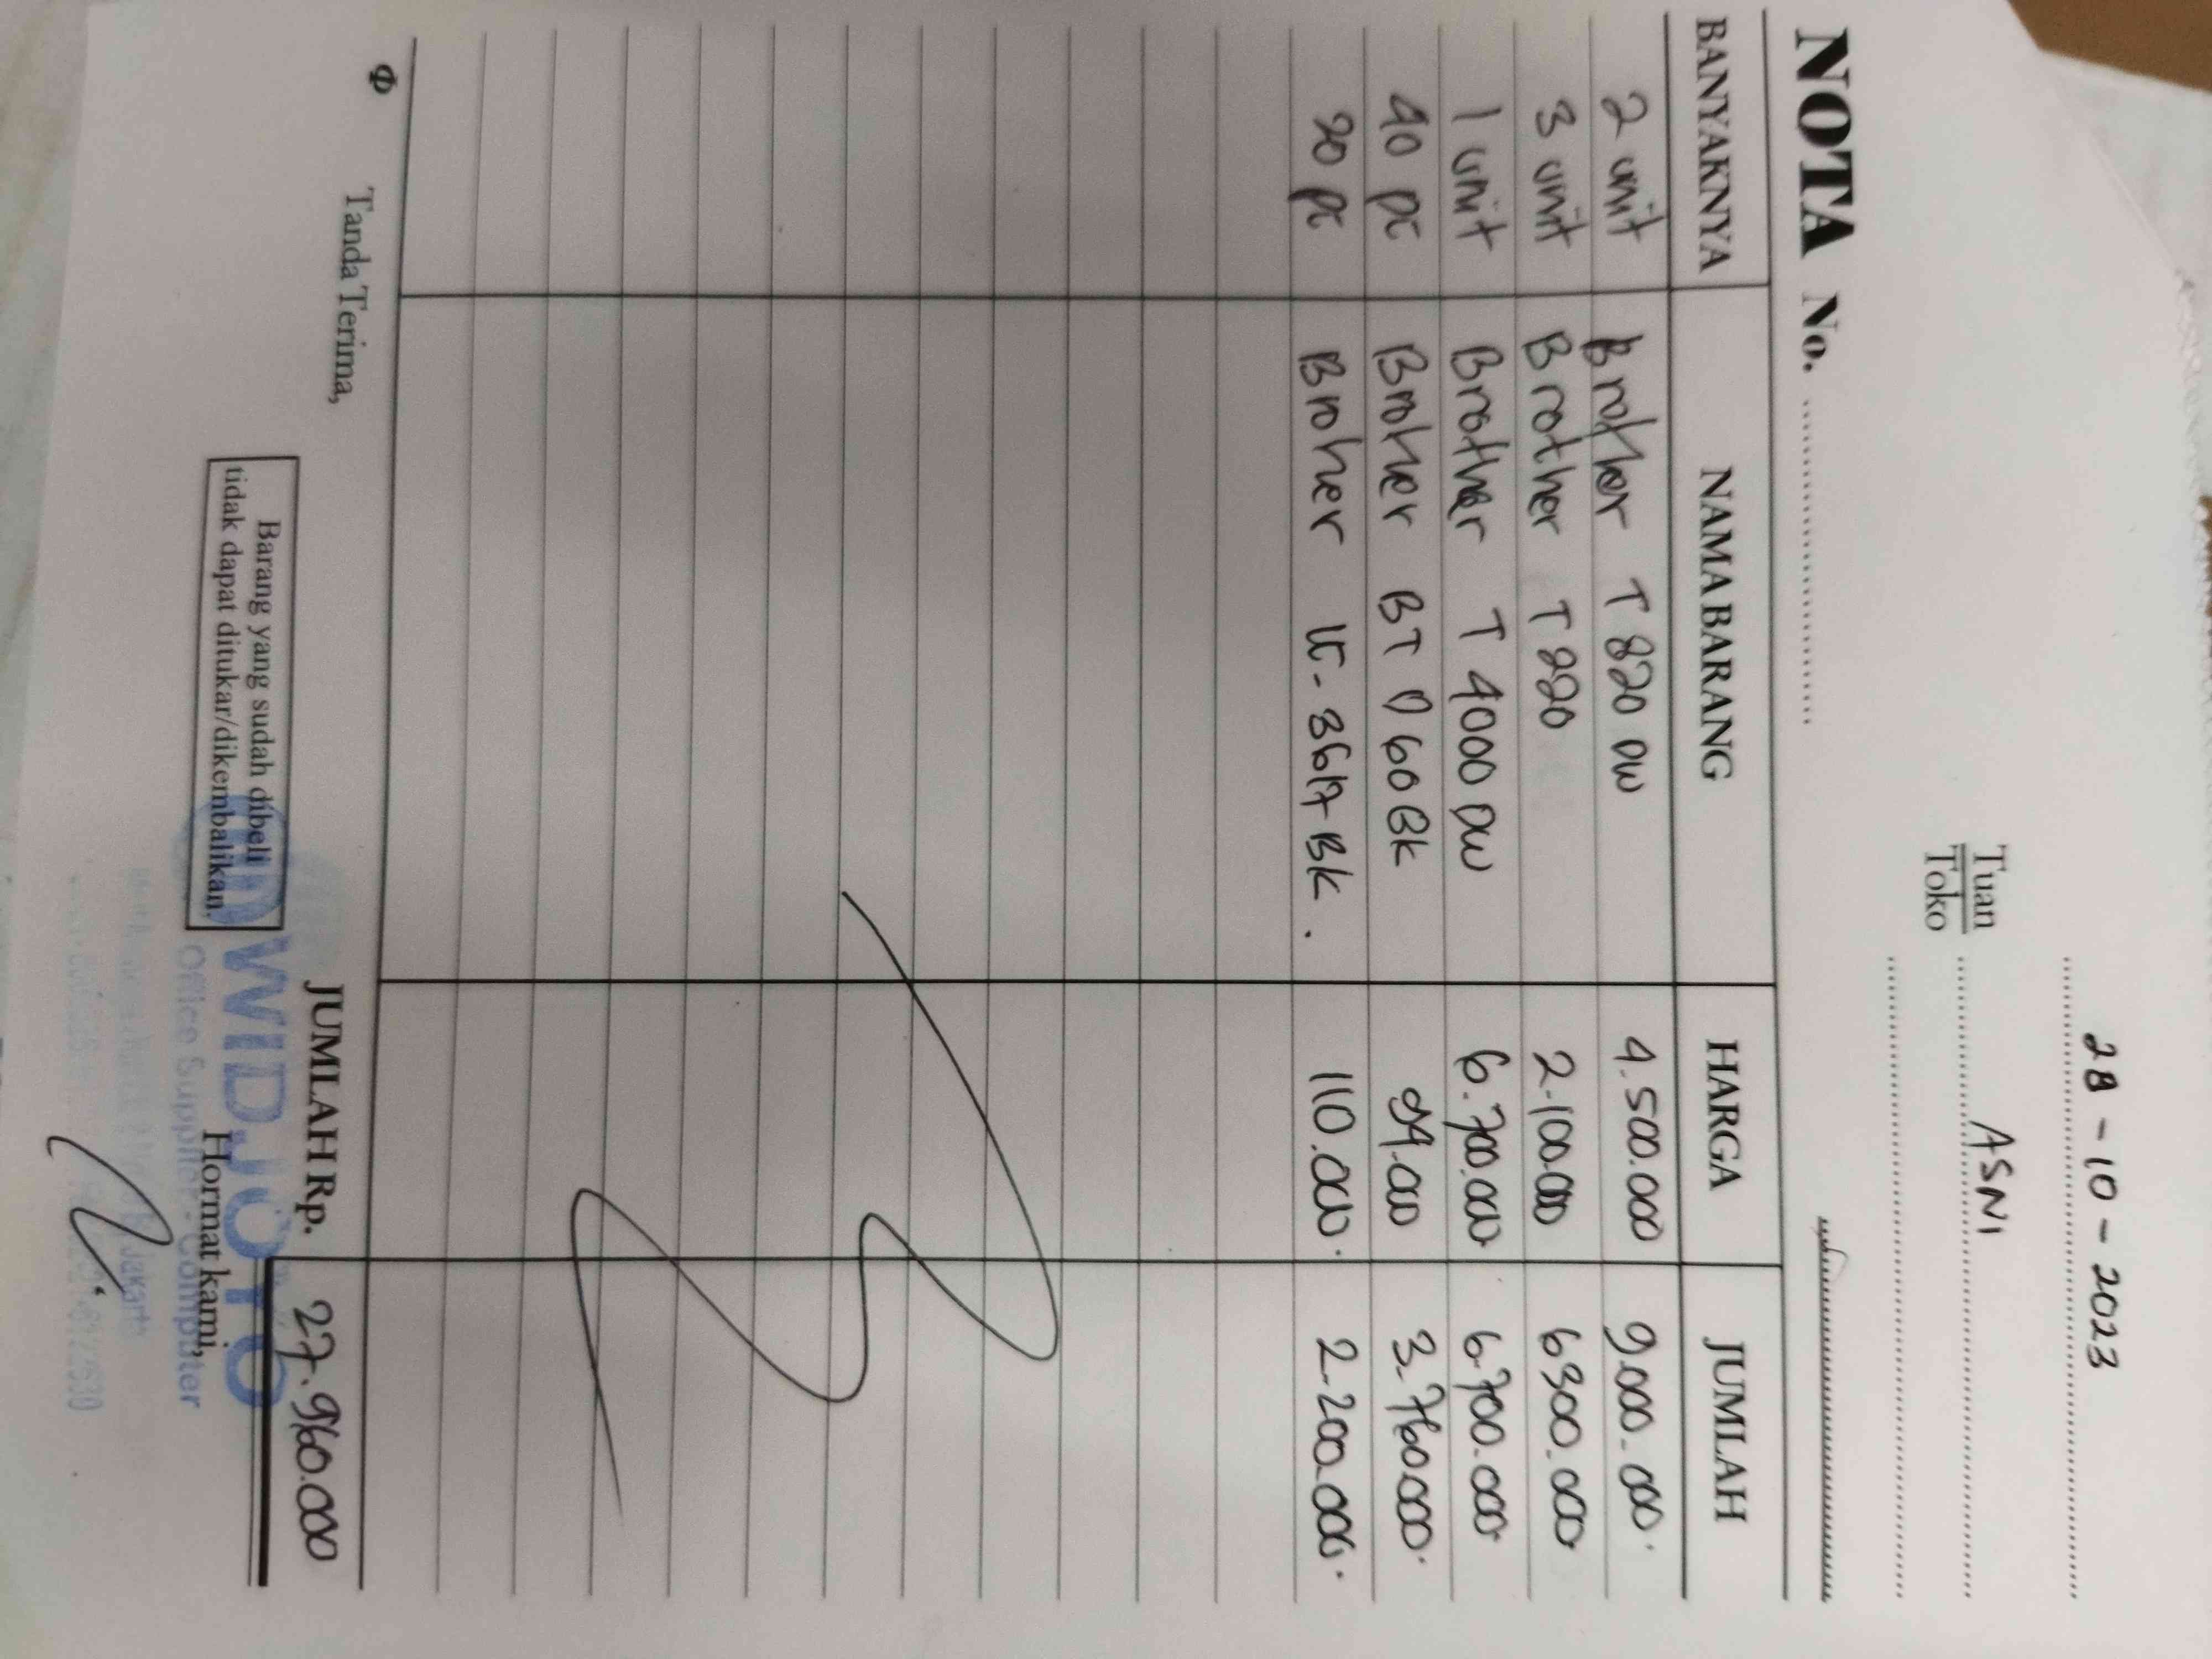 28 - 10 - 2023
Tuan ASNI
Toko
NOTA No.
BANYAKNYA NAMA BARANG HARGA JUMLAH
2 unit Brother T 820 DW 4.500.000 9.000.000.
3 unit Brother T 220 2.100.000 6.300.000
1 unit Brother T 4000 DW 6.700.000 6.700.000
40 pc Broher BT D 60 BK 94.000 3.760.000.
20 pc Broher LC - 3617 BK. 110.000. 2.200.000.
JUMLAH Rp. 27.960.000
Tanda Terima,
Barang yang sudah dibeli
tidak dapat ditukar/dikembalikan.
Hormat kami,
WIDJOYO
Office Supplier - Computer
Jakarta